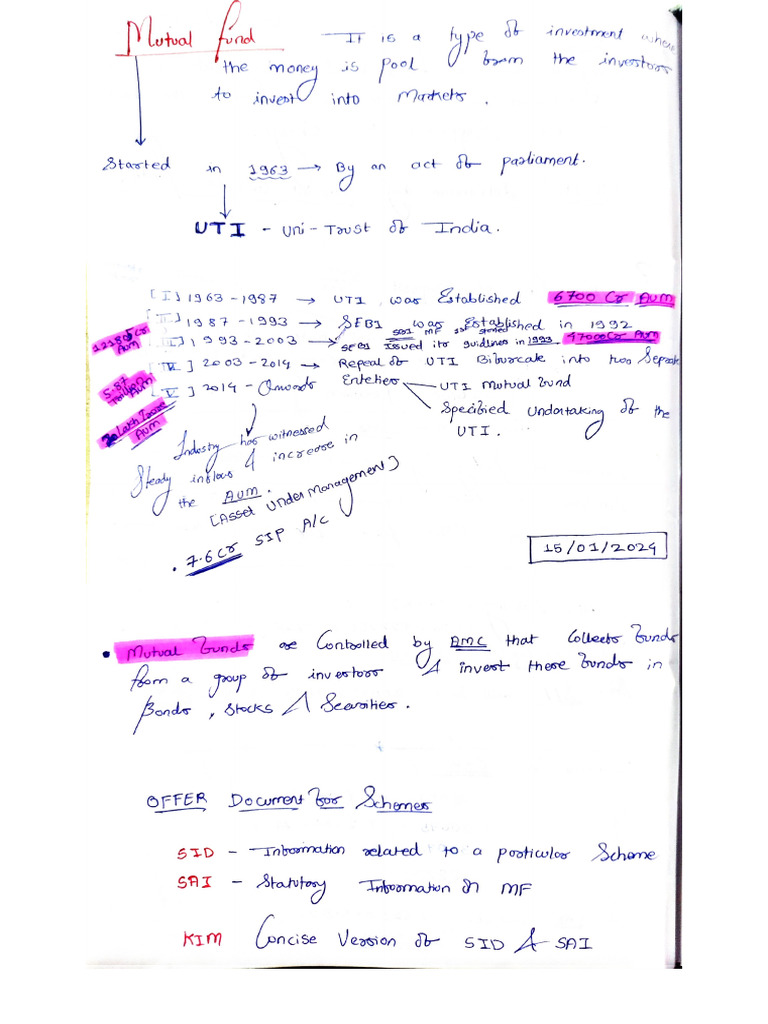 Mutual fund It is a type of investment where
the money is pool from the investors
to invest into Markets.
Started in 1963 → By an act of parliament.
UTI - Uni-Trust of India.
[I] 1963-1987 → UTI was Established 6700 Cr AUM
[II] 1987-1993 → SEBI was Established in 1992
SBI MF 1st started
121805 Cr AUM [III] 1993-2003 → SEBI Issued its guidlines in 1993 47000 Cr AUM
[IV] 2003-2014 → Repeal of UTI Bifurcate into two Separate
Enteties UTI Mutual fund
5.87 Trillion AUM [V] 2014 - Onwords
Specified Undertaking of the
UTI.
Lakh Crore AUM
Industry has witnessed
Steady inflows & increase in
the AUM.
[Asset Under Management]
• 7.6 Cr SIP A/C
15/01/2024
• Mutual funds are Controlled by AMC that Collects funds
from a group of investors & invest these funds in
Bonds, Stocks & Searities.
OFFER Document for Schemes
SID - Information related to a particular Scheme
SAI - Statutory Information on MF
KIM Concise Version of SID & SAI